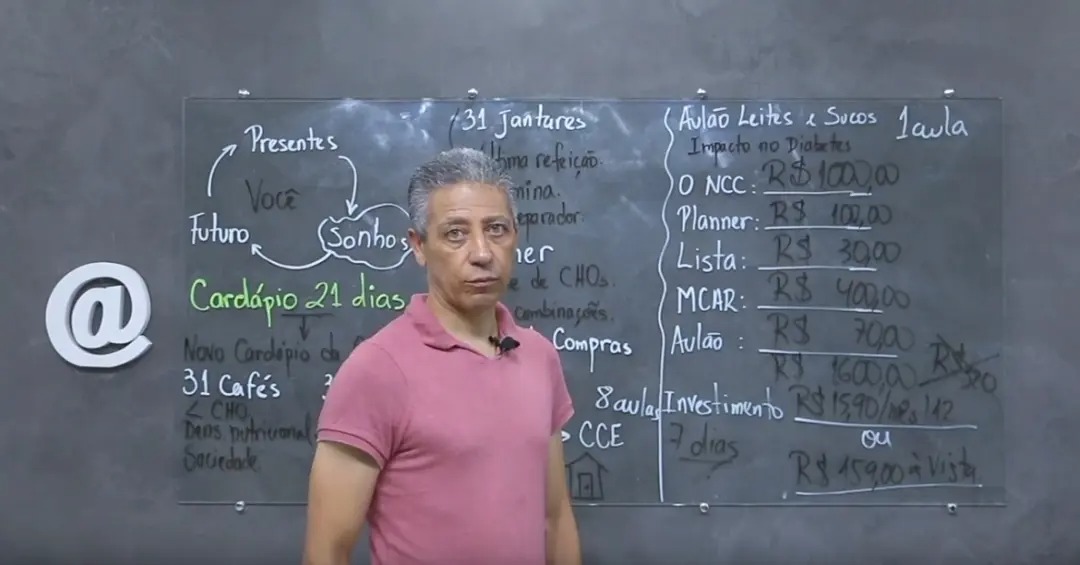 @
Presentes
Você
Futuro
Sonhos
Cardápio 21 dias
Novo Cardápio da
31 Cafés
< CHO
Dens. nutricional
Saciedade
31 Jantares
refeição.
ner
de CHOs.
Combinações.
Compras
8 aulas
CCE
Aulão Leites e Sucos 1 aula
Impacto no Diabetes
O NCC: R$ 1000,00
Planner: R$ 100,00
Lista: R$ 30,00
MCAR: R$ 400,00
Aulão: R$ 70,00
R$ 1600,00
Investimento R$ 15,90/mês/12
7 dias
ou
R$ 159,00 à Vista